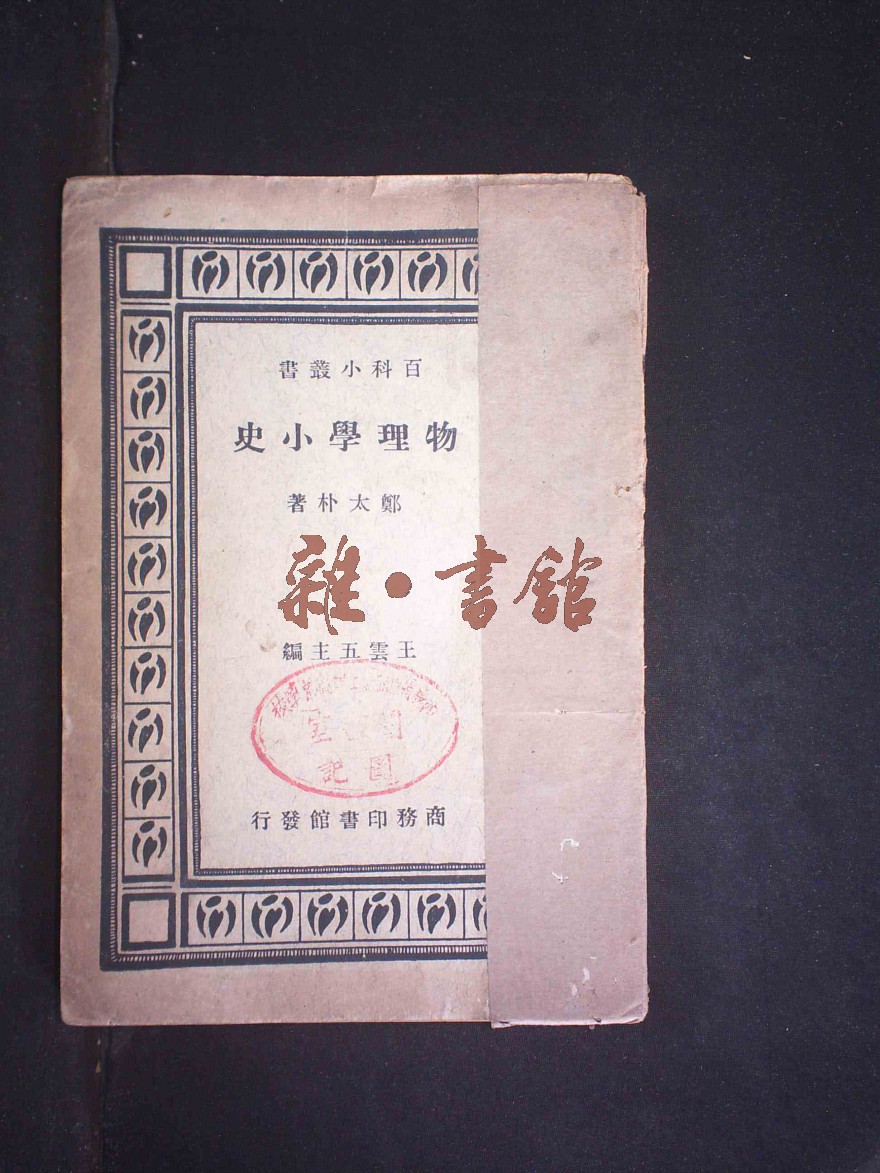 百科小叢書
物理學小史
鄭太朴著
雜·書館
王雲五主編
圖記
商務印書館發行